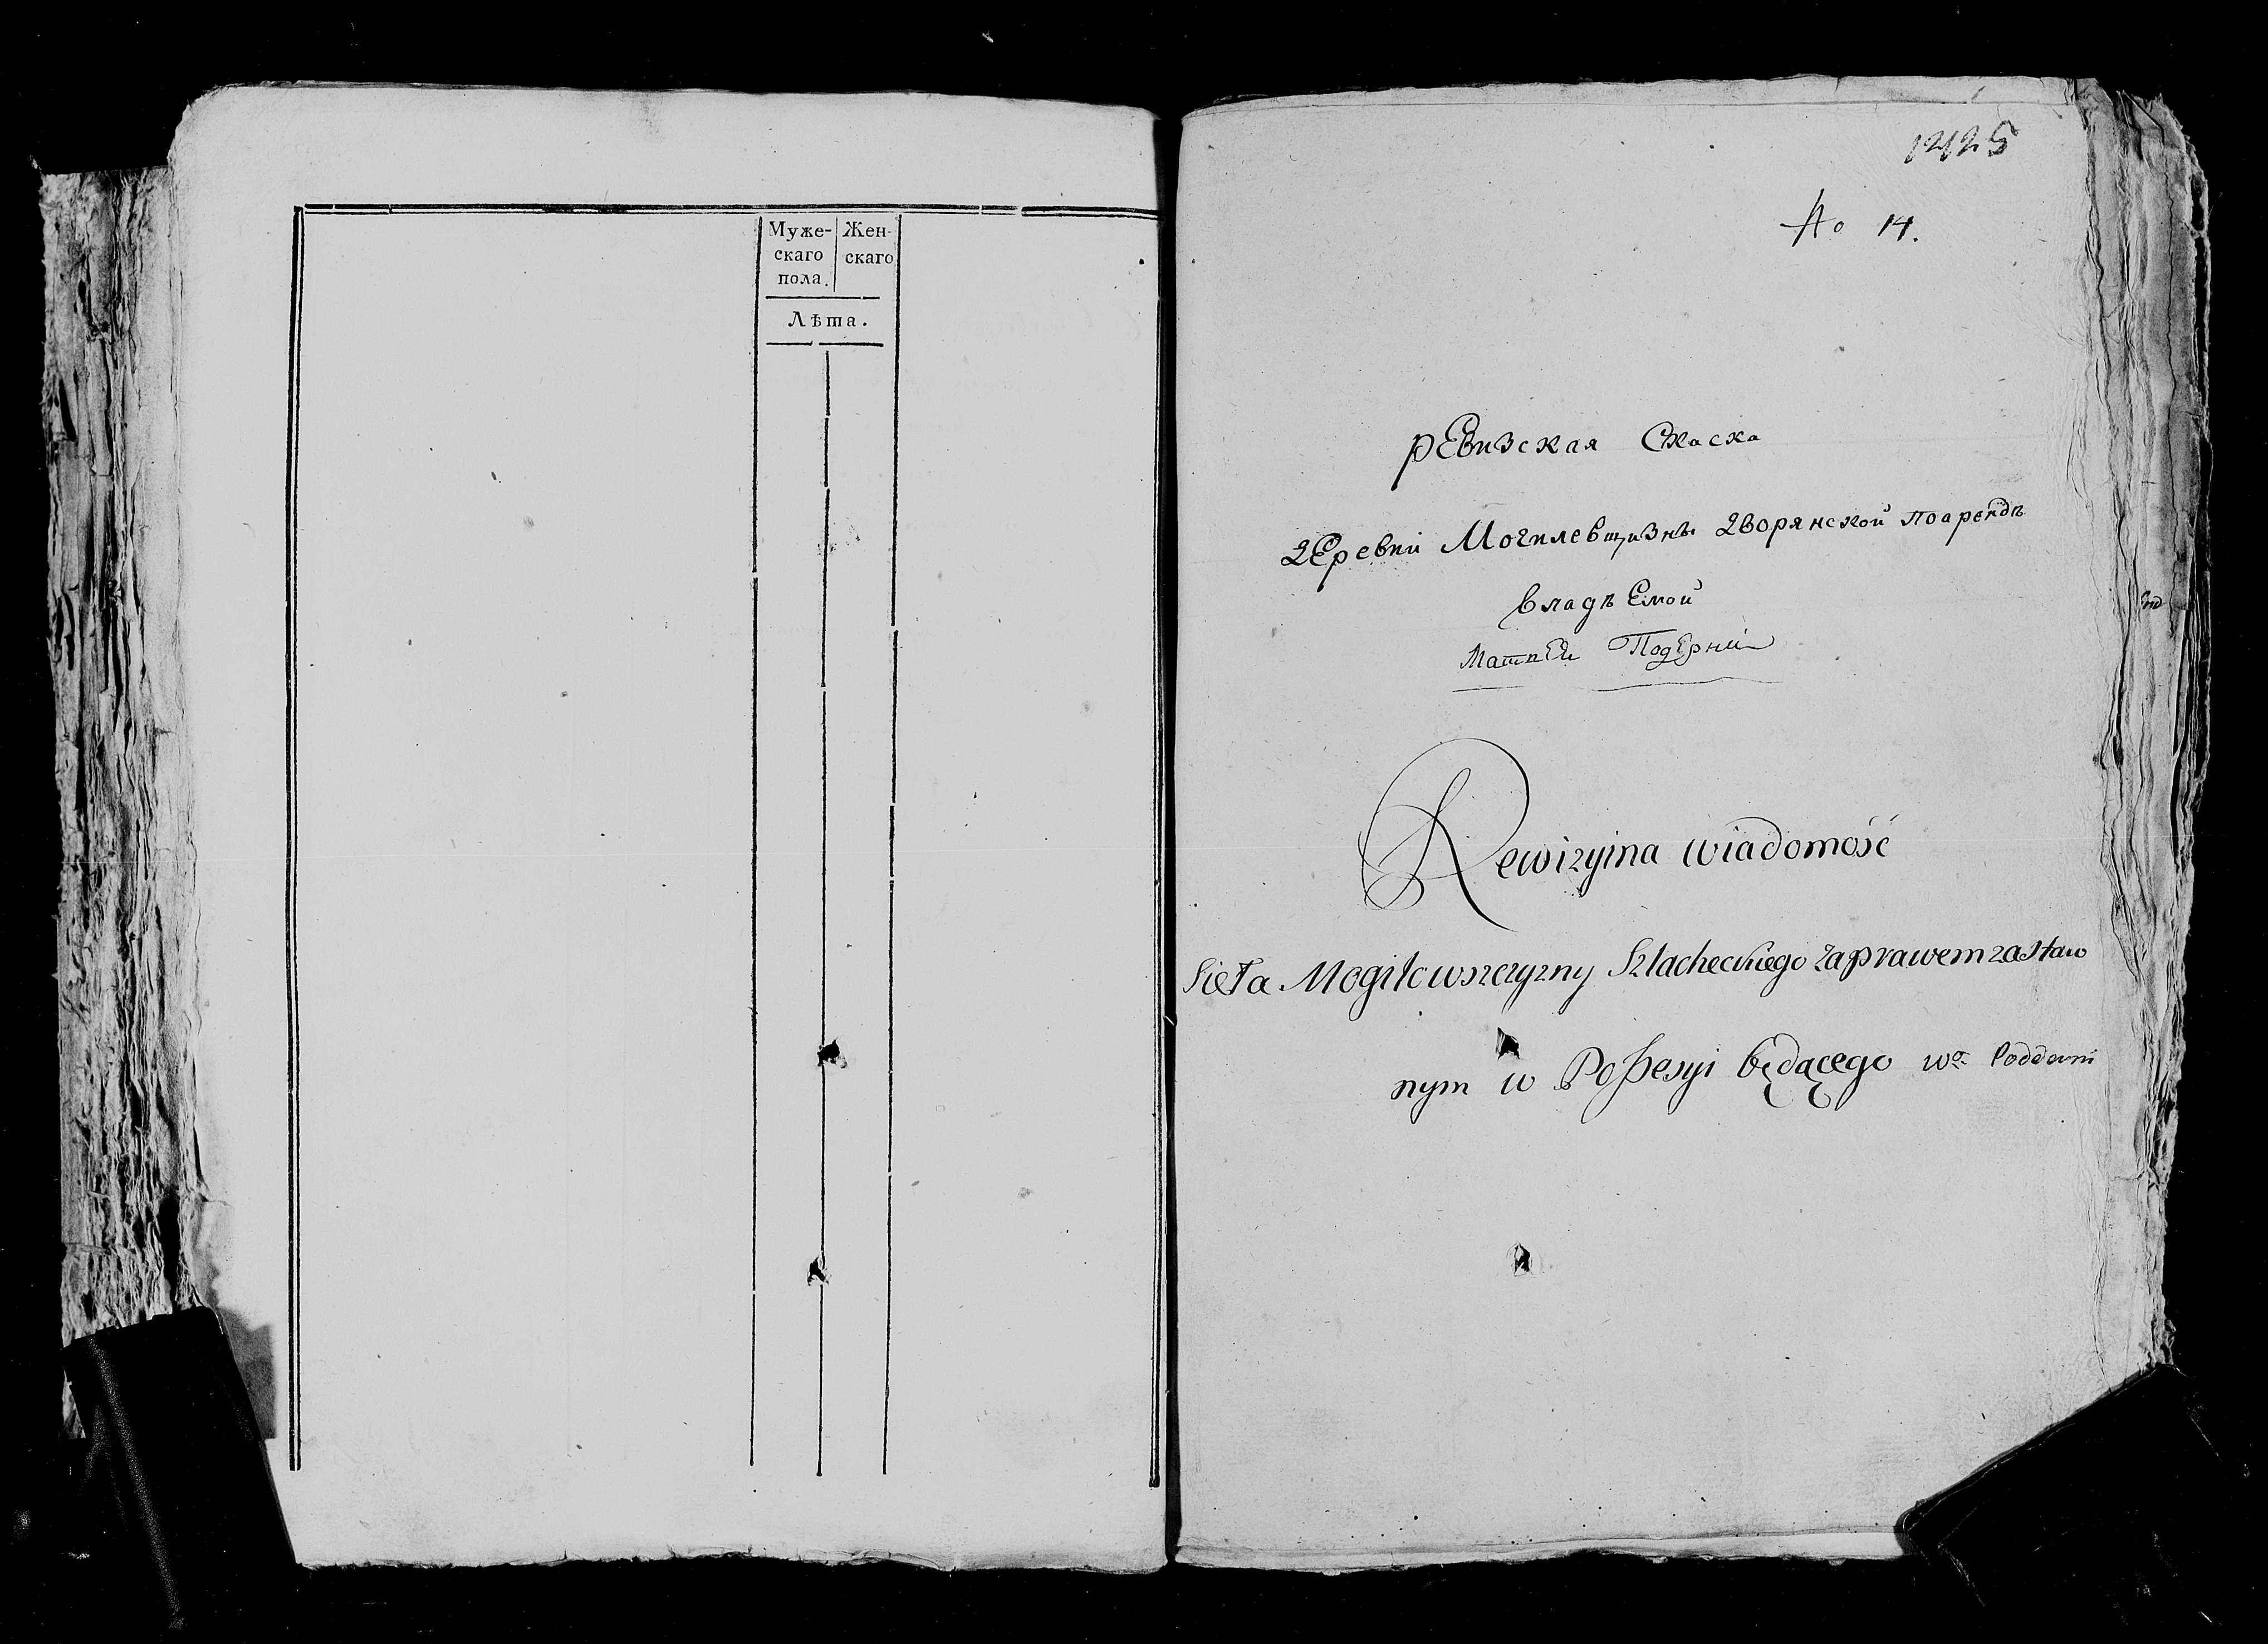 Муже- Жен-
скаго скаго
пола.
Лѣта.
No 14.
ревизская скаска
деревни Могилевщизны дворянской поарендѣ
владѣемой
Матпей Подерний
Rewizyina wiadomość
Sieła Mogiłowszczyzny Szlacheckiego za prawem zastaw
nym w Possesyi będącego wo Podderni